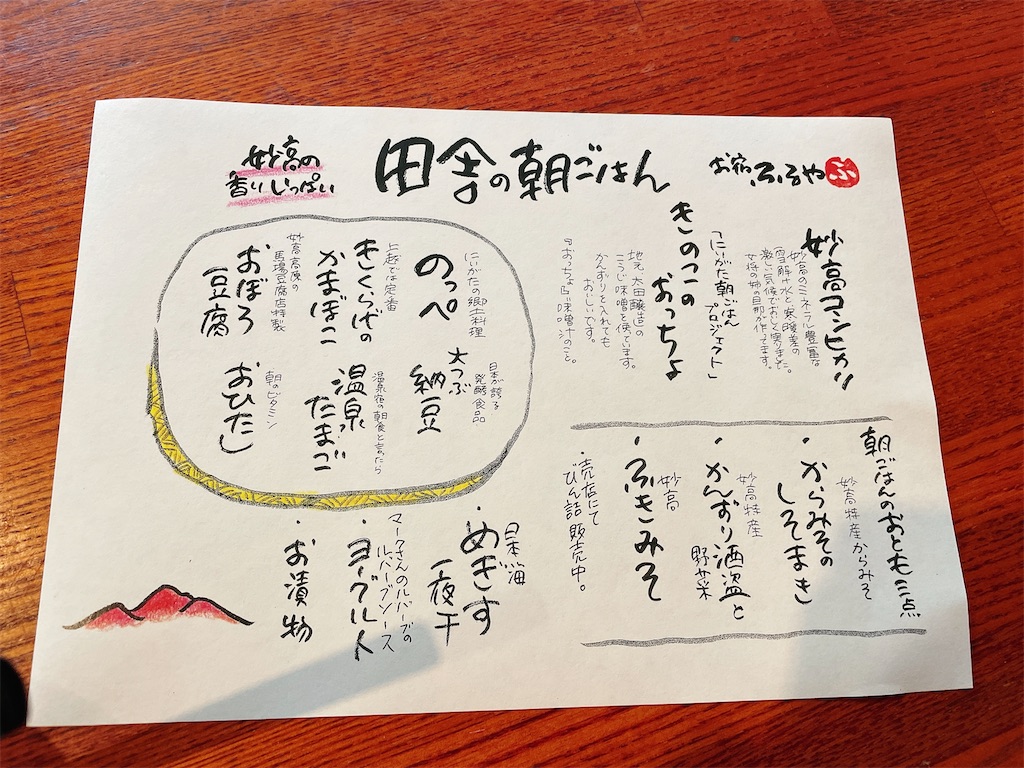 妙高の
香りいっぱい
田舎の朝ごはん
お宿 ふるや
ふ
妙高コシヒカリ
妙高のミネラル豊富な
雪解け水と、寒暖差の
激しい気候でおいしく実りました。
女将の姉の旦那が作ってます。
きのこの
おっちょ
「にいがた朝ごはん
プロジェクト」
地元、太田醸造の
こうじ味噌を使っています。
かんずりを入れても
おいしいです。
『おっちょ』は味噌汁のこと。
のっぺ
にいがたの郷土料理
きくらげの
かまぼこ
上越では定番
おぼろ
豆腐
妙高高原の
馬場豆腐店特製
大つぶ
納豆
日本が誇る
発酵食品
温泉
たまご
温泉宿の朝食と言たら
おひたし
朝のビタミン
朝ごはんのおとも三点
妙高特産からみそ
・からみその
しそまき
妙高特産
・かんずり酒盗と
野菜
妙高
・ふきみそ
・売店にて
びん詰販売中。
日本海
・めぎす
一夜干
マークさんのルバーブの
ルバーブソース
・ヨーグルト
・お漬物